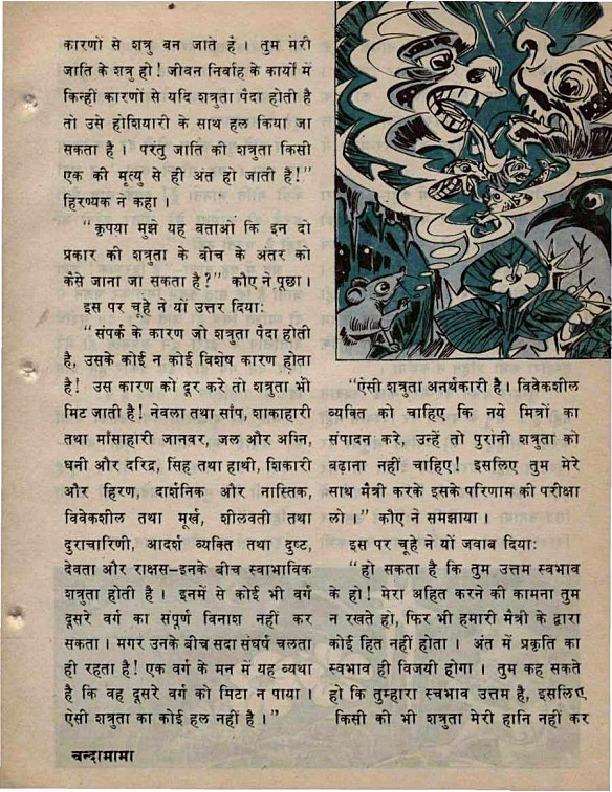 कारणों से शत्रु बन जाते हैं । तुम मेरी
जाति के शत्रु हो! जीवन निर्वाह के कार्यों में
किन्हीं कारणों से यदि शत्रुता पैदा होती है
तो उसे होशियारी के साथ हल किया जा
सकता है । परंतु जाति की शत्रुता किसी
एक की मृत्यु से ही अंत हो जाती है!"
हिरण्यक ने कहा ।
"कृपया मुझे यह बताओ कि इन दो
प्रकार की शत्रुता के बीच के अंतर को
कैसे जाना जा सकता है?" कौए ने पूछा ।
इस पर चूहे ने यों उत्तर दिया:
"संपर्क के कारण जो शत्रुता पैदा होती
है, उसके कोई न कोई बिशेष कारण होता
है! उस कारण को दूर करे तो शत्रुता भी
मिट जाती है! नेवला तथा साँप, शाकाहारी
तथा माँसाहारी जानवर, जल और अग्नि,
धनी और दरिद्र, सिंह तथा हाथी, शिकारी
और हिरण, दार्शनिक और नास्तिक,
विवेकशील तथा मूर्ख, शीलवती तथा
दुराचारिणी, आदर्श व्यक्ति तथा दुष्ट,
देवता और राक्षस-इनके बीच स्वाभाविक
शत्रुता होती है । इनमें से कोई भी वर्ग
दूसरे वर्ग का संपूर्ण विनाश नहीं कर
सकता । मगर उनके बीच सदा संघर्ष चलता
ही रहता है! एक वर्ग के मन में यह व्यथा
है कि वह दूसरे वर्ग को मिटा न पाया ।
ऐसी शत्रुता का कोई हल नहीं है ।"
"ऐसी शत्रुता अनर्थकारी है । विवेकशील
व्यक्ति को चाहिए कि नये मित्रों का
संपादन करे, उन्हें तो पुरानी शत्रुता को
बढ़ाना नहीं चाहिए! इसलिए तुम मेरे
साथ मैत्री करके इसके परिणाम की परीक्षा
लो ।" कौए ने समझाया ।
इस पर चूहे ने यों जवाब दिया:
"हो सकता है कि तुम उत्तम स्वभाव
के हो! मेरा अहित करने की कामना तुम
न रखते हो, फिर भी हमारी मैत्री के द्वारा
कोई हित नहीं होता । अंत में प्रकृति का
स्वभाव ही विजयी होगा । तुम कह सकते
हो कि तुम्हारा स्वभाव उत्तम है, इसलिए
किसी की भी शत्रुता मेरी हानि नहीं कर
चन्दामामा